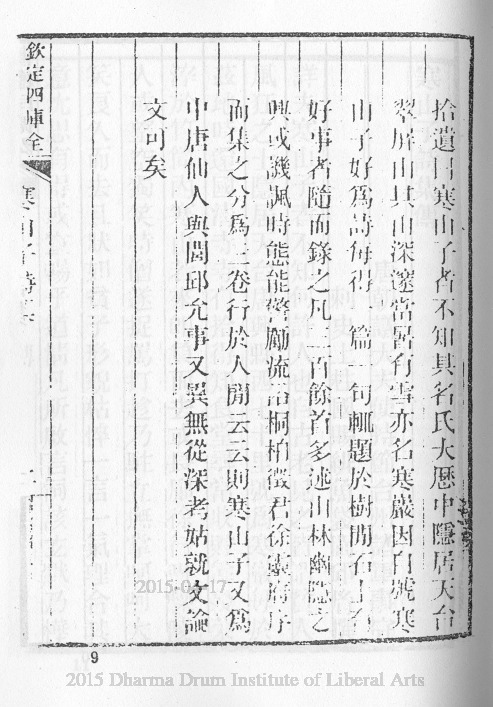 拾遺曰寒山子者不知其名氏大厯中隱居天台
翠屏山其山深邃當暑有雪亦名寒巖因自號寒
山子好爲詩每得一篇一句輒題於樹間石上有
好事者隨而錄之凡三百餘首多述山林幽隱之
興或譏諷時態能警勵流俗桐柏徵君徐靈府序
而集之分爲三卷行於人間云云則寒山子又爲
中唐仙人與閭邱允事又異無從深考姑就文論
文可矣
欽定四庫全
寒山子詩
2015-04-17
9
2015 Dharma Drum Institute of Liberal Arts